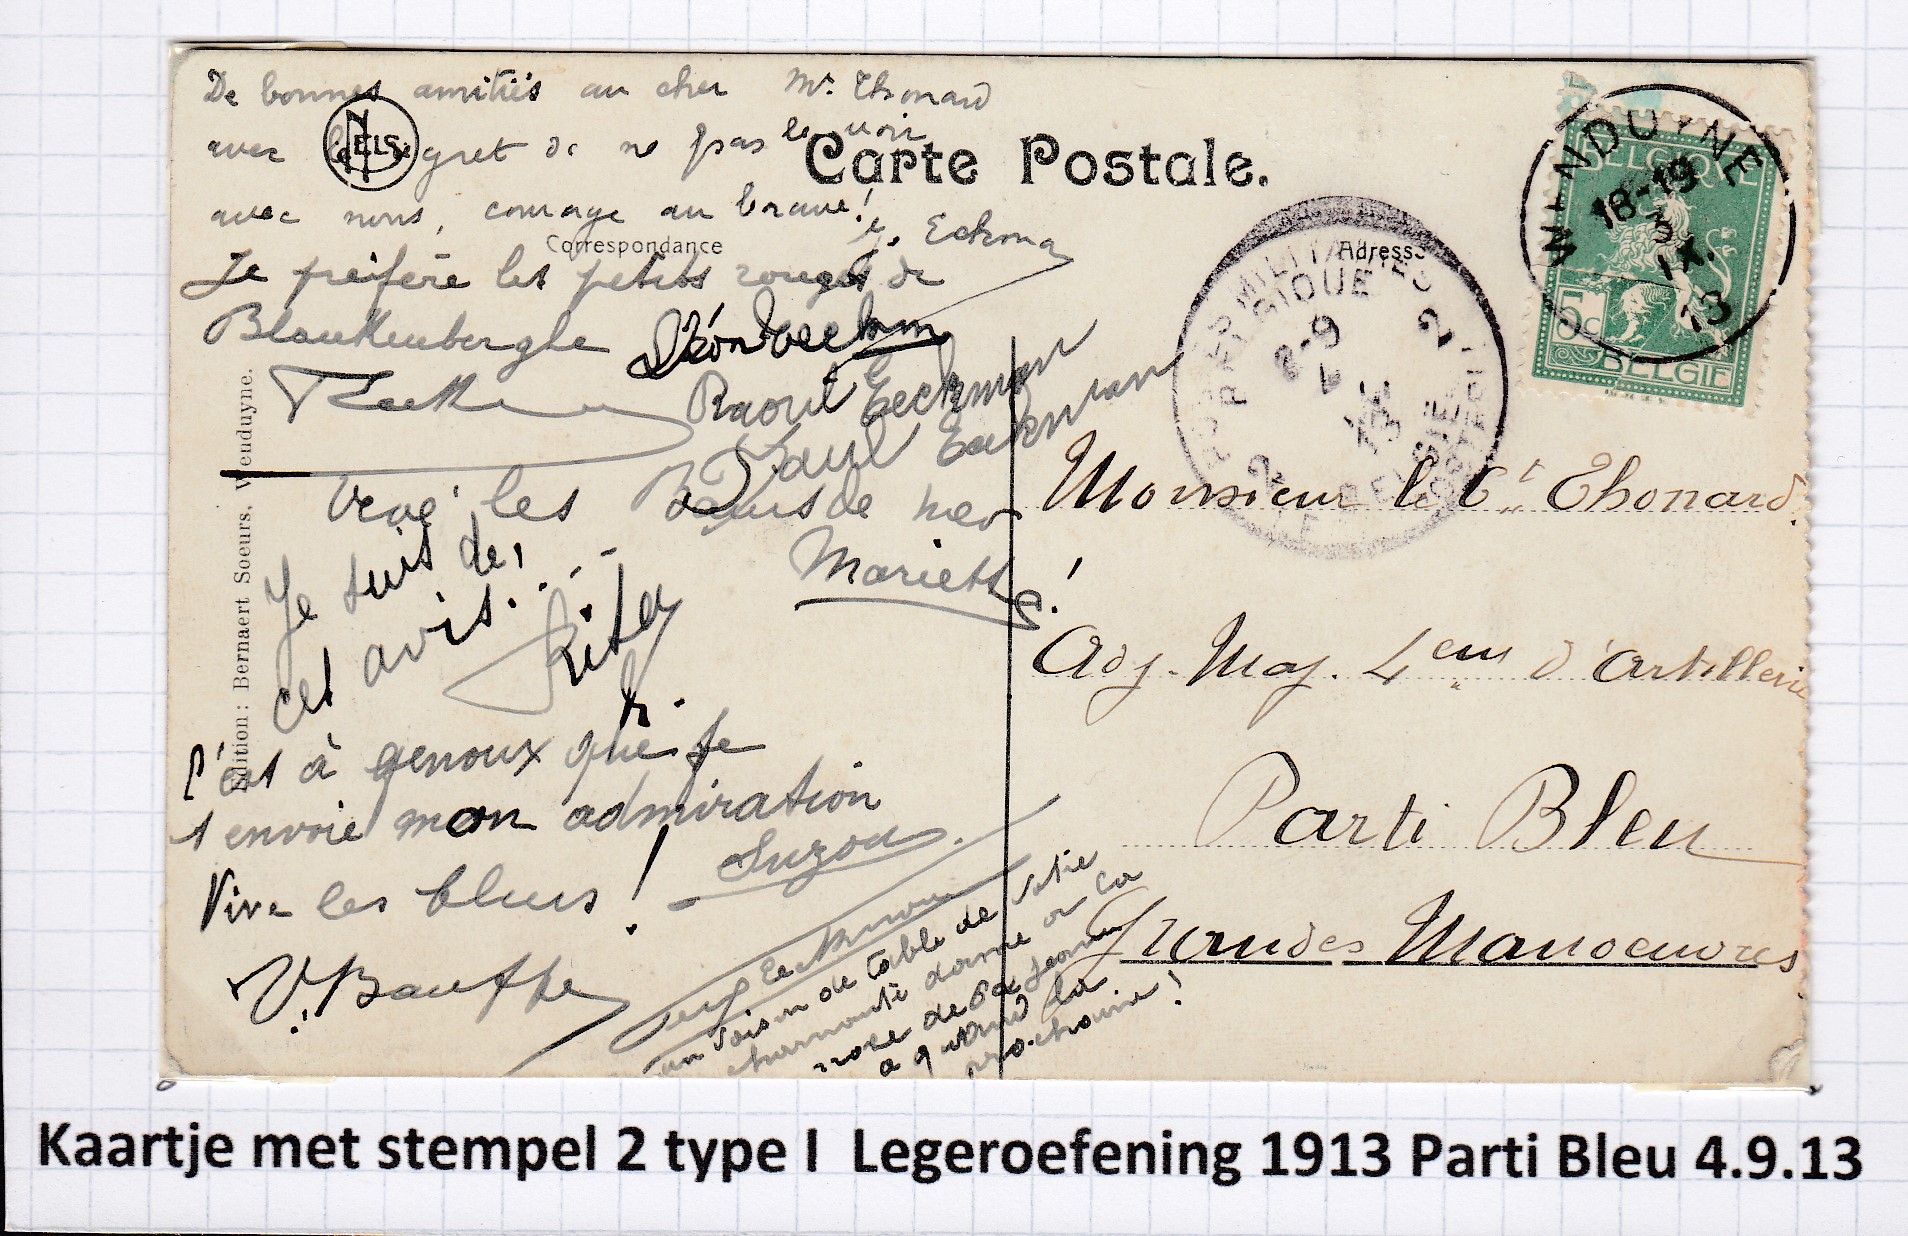 De bonnes amitiés au cher Mr. Thonard
avec le regret de ne pas le voir
avec nous, courage au brave!
J. Eekma
Je préfère les petits rouges de
Blankenberghe Léon Eeckman
Raoul Eeckman
Paul Eeckman
Vive les Bains de mer
Mariette!
Je suis de
cet avis...
Rita
C'est à genoux que je
t'envoie mon admiration
Suzon.
Vive les bleus!
un voisin de table de votre
charmante dame
a quand la
prochaine!
NELS
Carte Postale.
Correspondance
Adresse
Edition: Bernaert Soeurs, Wenduyne.
WENDUYNE
18-19
3
IX.
13
BELGIQUE
5c
BELGIE
POSTES MILITAIRES
BELGIQUE
2
8-9
4
IX
13
2
BELGIE
Monsieur le Ct Thonard.
Adj. Maj. 4em d'artillerie
Parti Bleu
Grandes Manoeuvres
Kaartje met stempel 2 type I Legeroefening 1913 Parti Bleu 4.9.13